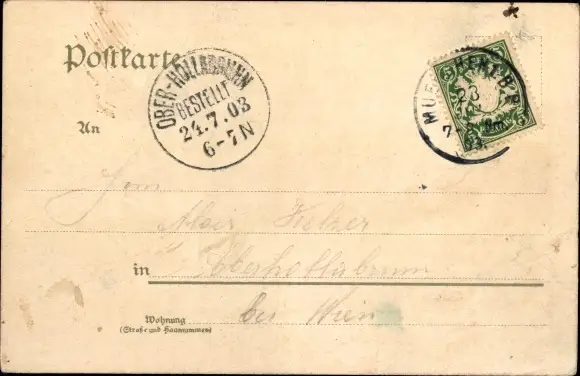 Postkarte
OBER-HOLLABRUNN
BESTELLT
24.7.03
6-7N
An
Alois
in Oberhollabrunn
bei Wien
Wohnung
(Straße und Hausnummer)